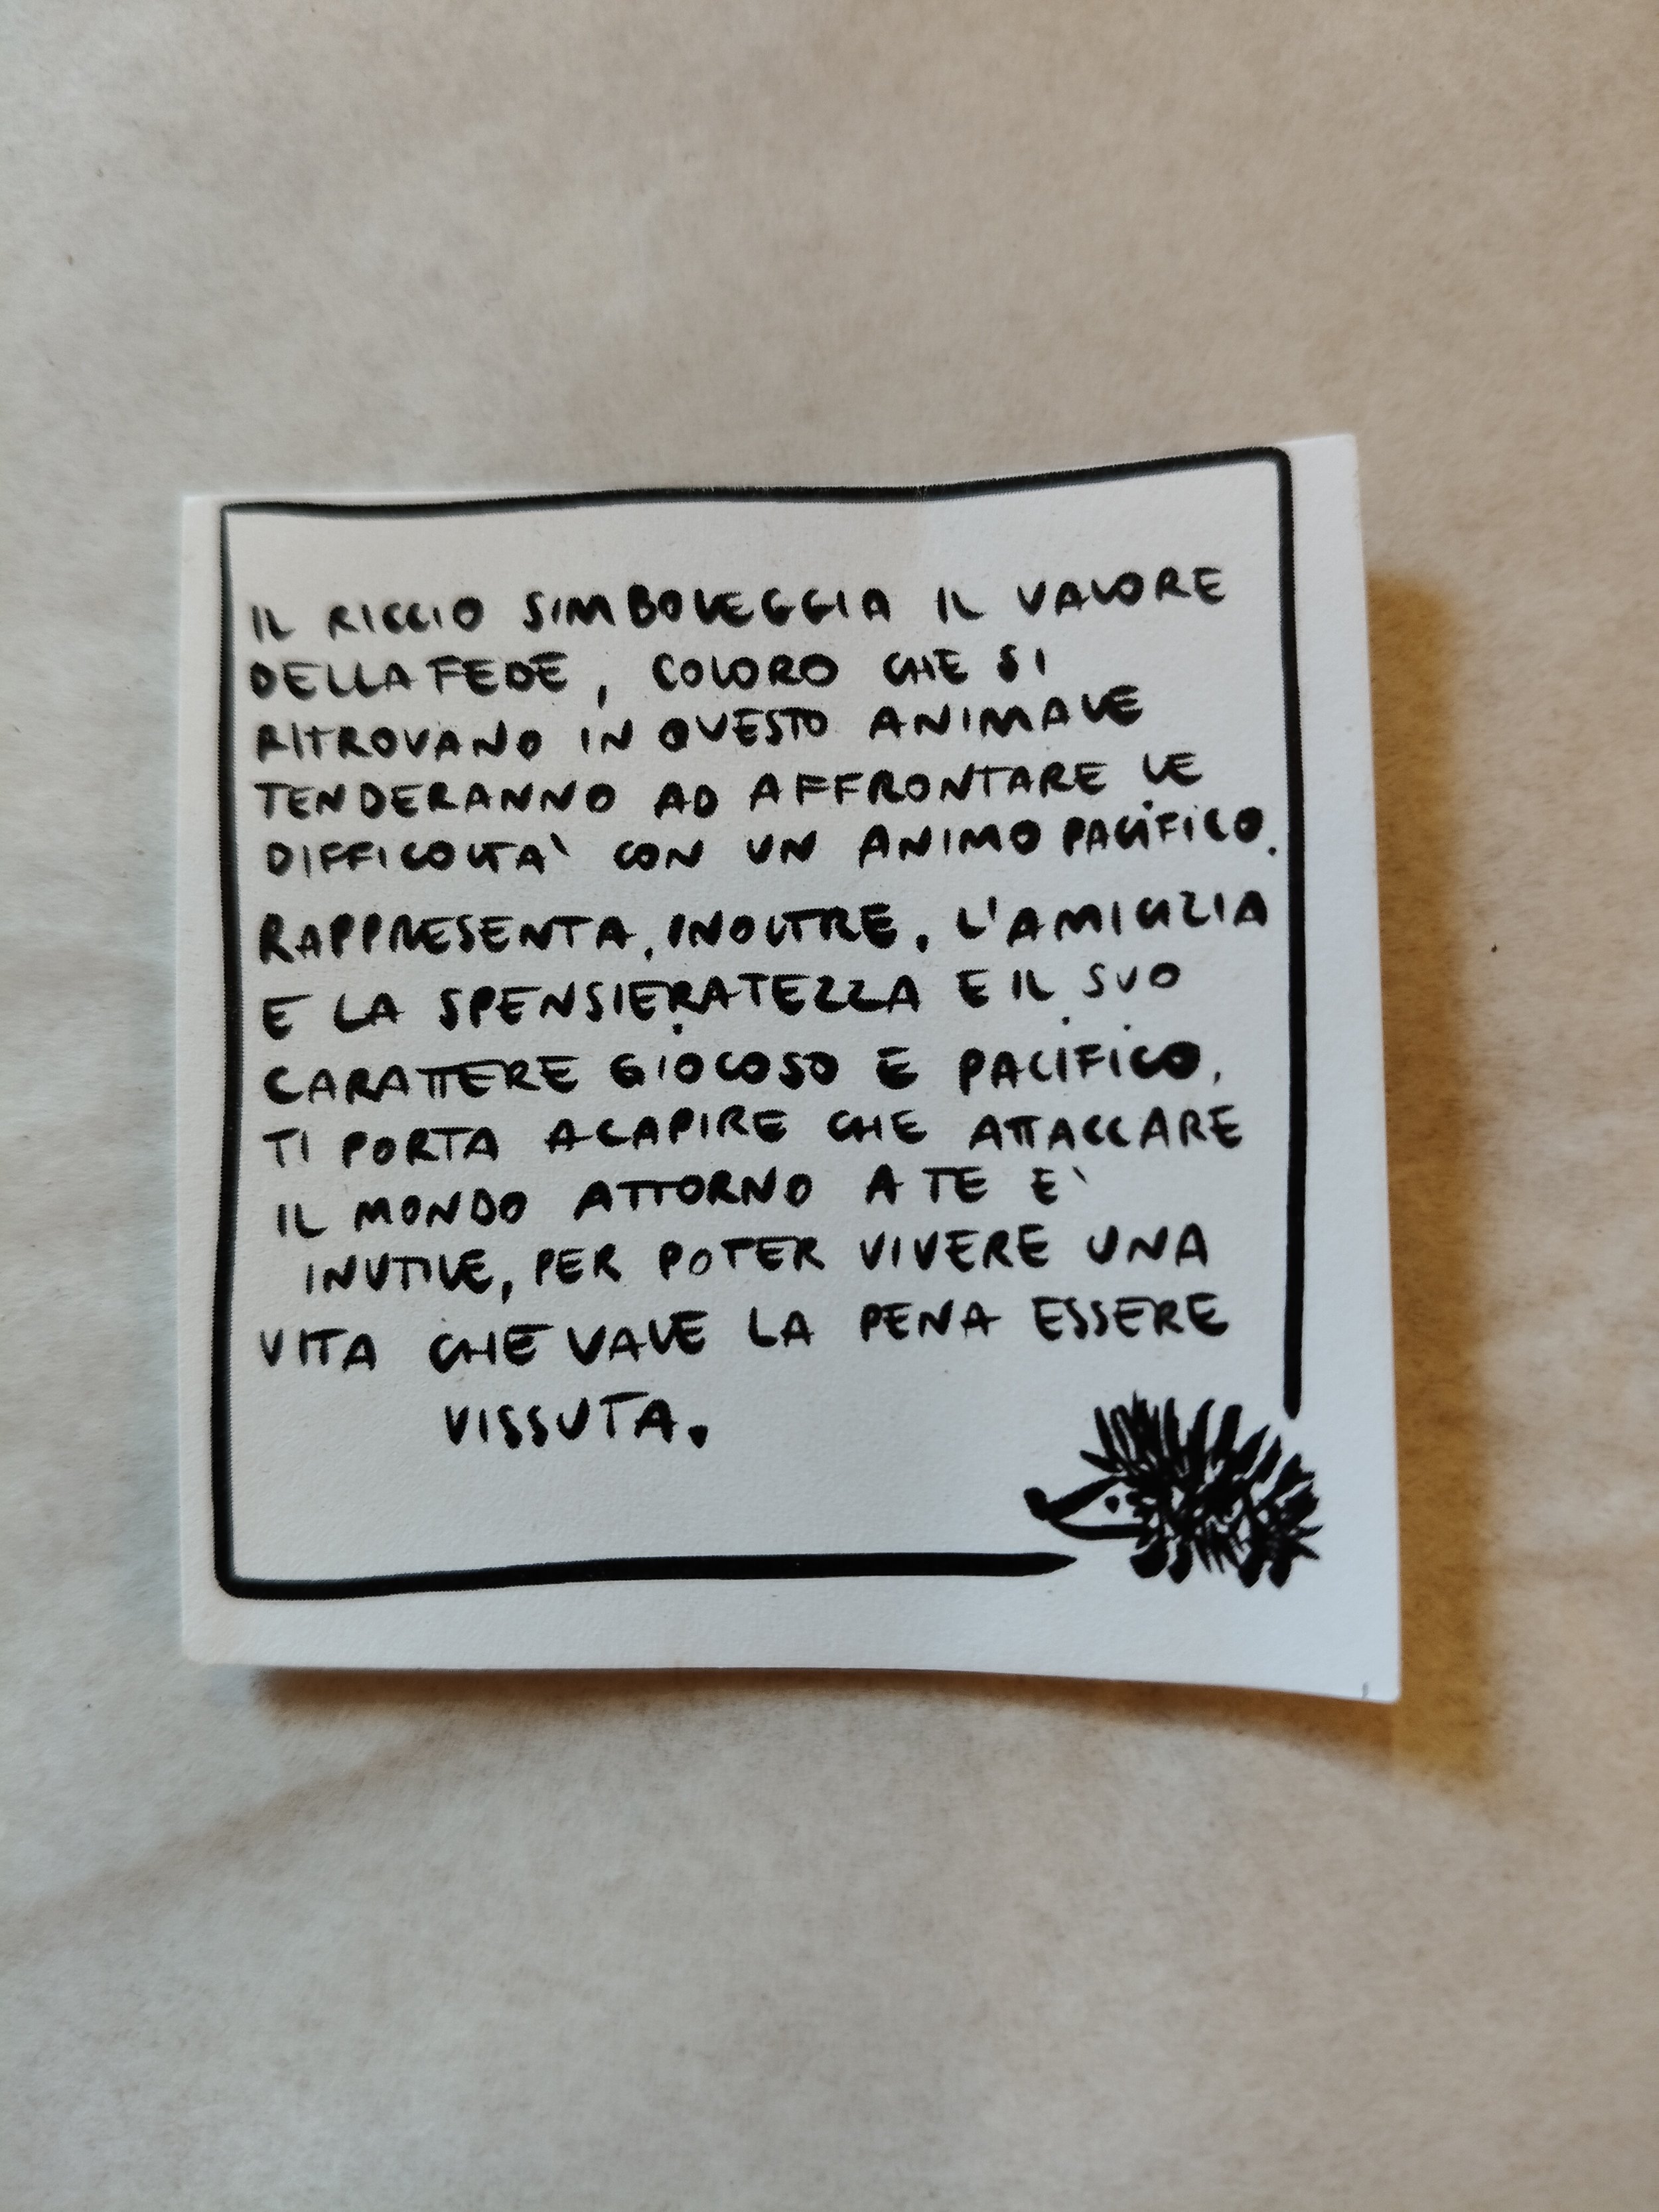 IL RICCIO SIMBOLEGGIA IL VALORE
DELLA FEDE, COLORO CHE SI
RITROVANO IN QUESTO ANIMALE
TENDERANNO AD AFFRONTARE LE
DIFFICOLTA' CON UN ANIMO PACIFICO.
RAPPRESENTA, INOLTRE, L'AMICIZIA
E LA SPENSIERATEZZA E IL SUO
CARATTERE GIOCOSO E PACIFICO,
TI PORTA A CAPIRE CHE ATTACCARE
IL MONDO ATTORNO A TE E'
INUTILE, PER POTER VIVERE UNA
VITA CHE VALE LA PENA ESSERE
VISSUTA.